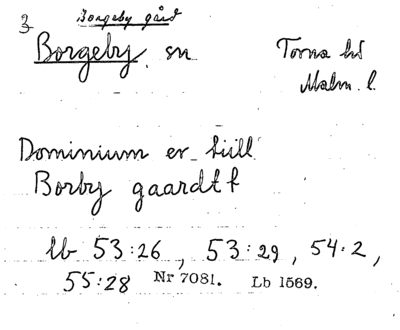 3 Borgeby gård
Borgeby sn Torna hd
Malm. l.
Dominium er till
Borby gaardt
lb 53:26, 53:29, 54:2,
55:28 Nr 7081. Lb 1569.